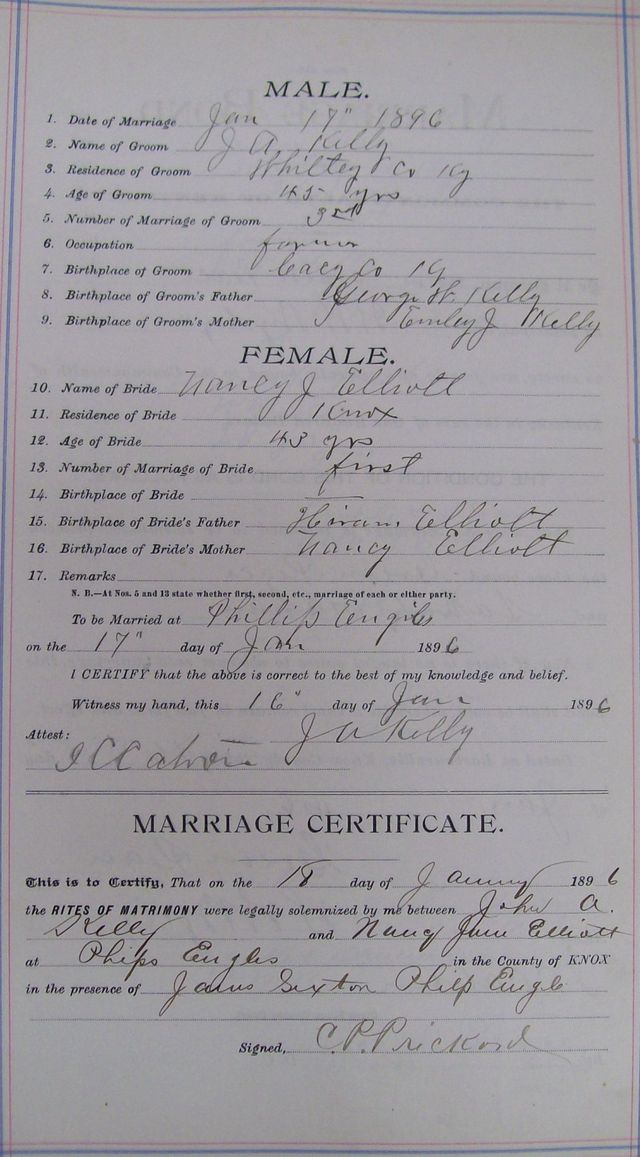 MALE.
1. Date of Marriage Jan 17" 1896
2. Name of Groom J A. Kelly
3. Residence of Groom Whitley Co Ky
4. Age of Groom 45 yrs
5. Number of Marriage of Groom 3rd
6. Occupation farmer
7. Birthplace of Groom Co Ky
8. Birthplace of Groom's Father George W. Kelly
9. Birthplace of Groom's Mother Emley J Kelly
FEMALE.
10. Name of Bride Nancy J Elliott
11. Residence of Bride Knox
12. Age of Bride 43 yrs
13. Number of Marriage of Bride first
14. Birthplace of Bride —
15. Birthplace of Bride's Father Hiram Elliott
16. Birthplace of Bride's Mother Nancy Elliott
17. Remarks
N. B.—At Nos. 5 and 13 state whether first, second, etc., marriage of each or either party.
To be Married at Phillip Engles
on the 17" day of Jan 1896
I CERTIFY that the above is correct to the best of my knowledge and belief.
Witness my hand, this 16" day of Jan 1896
Attest: J A Kelly
MARRIAGE CERTIFICATE.
This is to Certify, That on the 18 day of January 1896
the RITES OF MATRIMONY were legally solemnized by me between John A.
Kelly and Nancy Jane Elliott
at Phips Engles in the County of KNOX
in the presence of James Sexton Philp Engle
Signed, C. P. Prickard